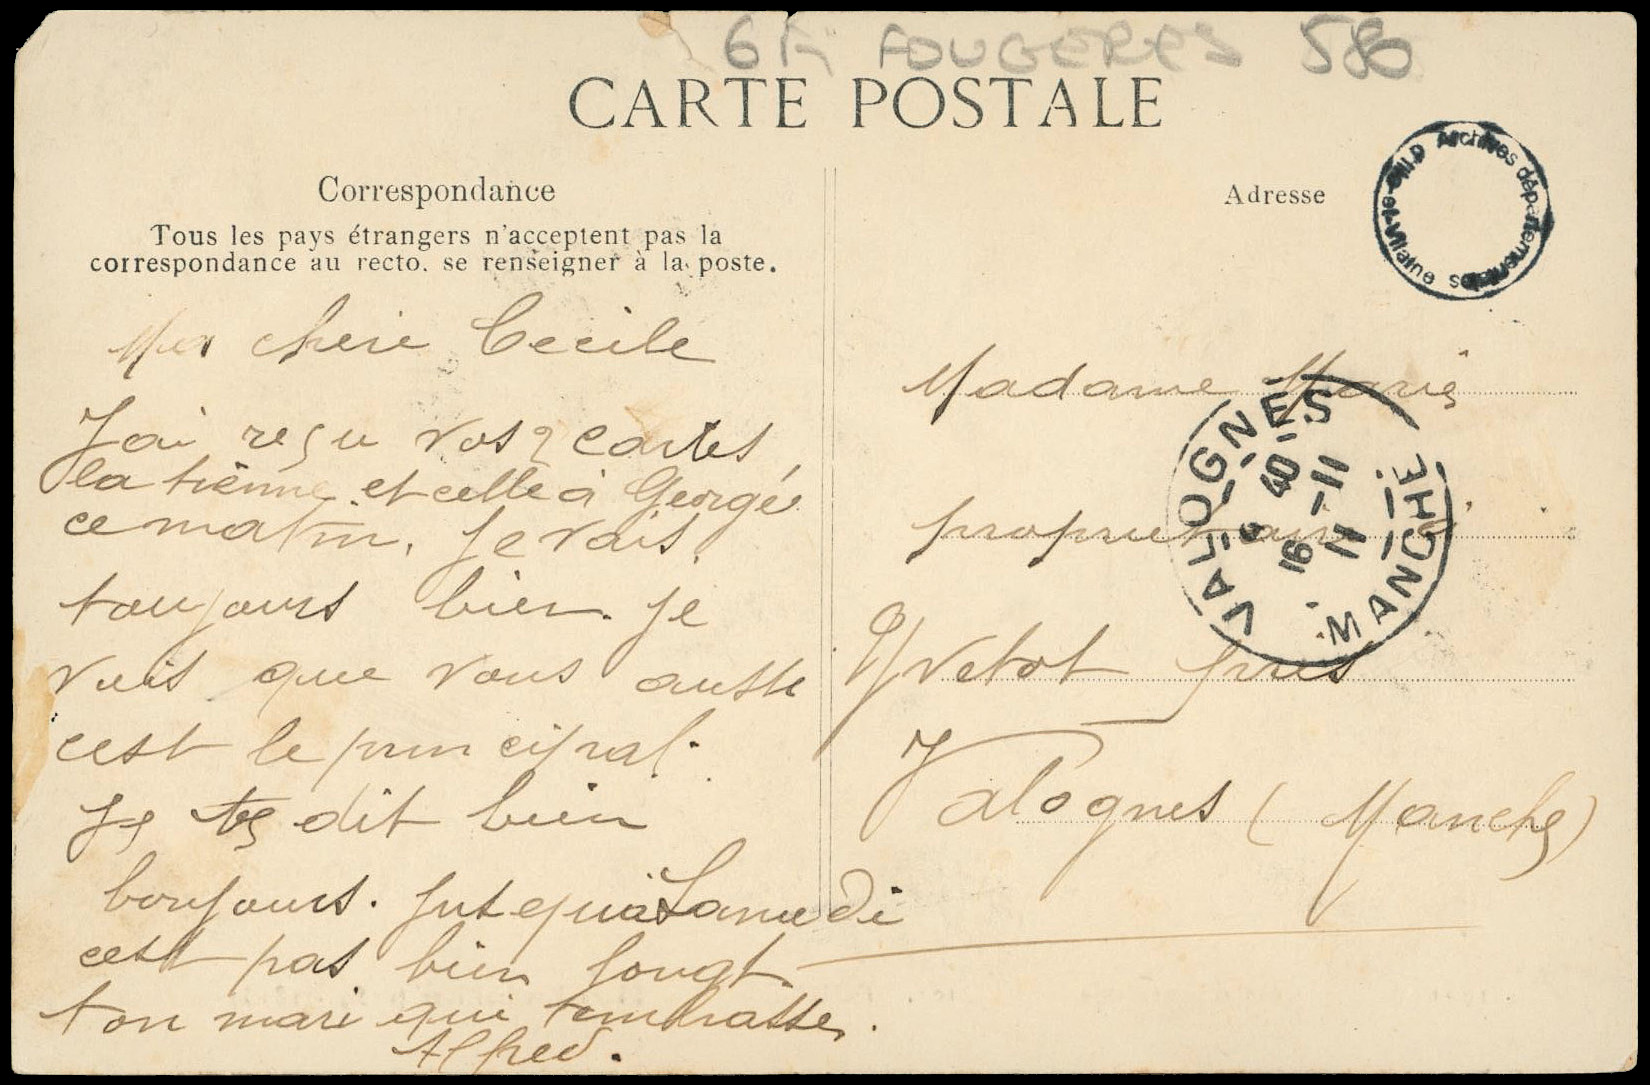 6 Fi FOUGERES 580
CARTE POSTALE
Correspondance
Tous les pays étrangers n'acceptent pas la
correspondance au recto. se renseigner à la poste.
Ma cherie Cecile
J'ai reçu vos 2 cartes,
la tienne et celle à George
ce matin. Je vais
toujours bien. Je
vois que vous aussi
cest le principal.
Je te dit bien
boujours. jusqu'à Samedi
cest pas bien longt.
ton mari qui tembrasse.
Alfred.
Adresse
Archives départementales
Ille-et-Vilaine
Madame Marie
propriétaire à
Yvetot près
Valognes (Manche)
VALOGNES
16 - 11
11
MANCHE